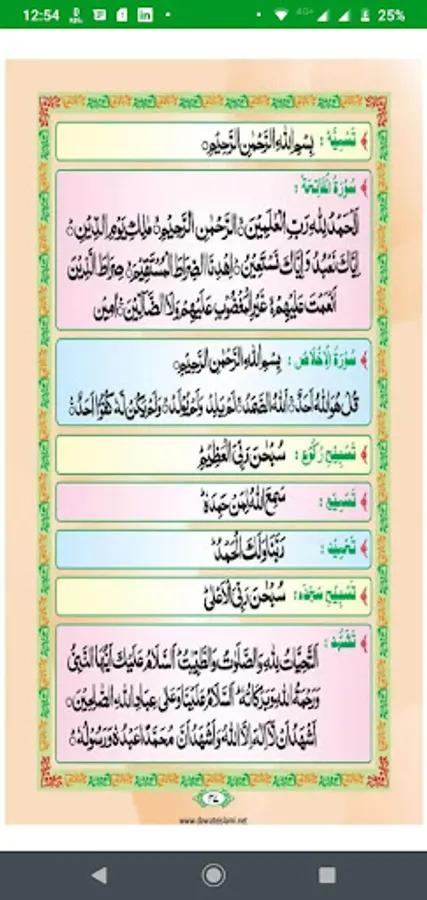 12:54
4G+
25%
تَسْمِیَّہ : بِسْمِ اللهِ الرَّحْمٰنِ الرَّحِيْمِ
سُوْرَۃُ الْفَاتِحَۃ :
اَلْحَمْدُ لِلّٰهِ رَبِّ الْعٰلَمِيْنَۙ الرَّحْمٰنِ الرَّحِيْمِۙ مٰلِكِ يَوْمِ الدِّيْنِؕ
اِيَّاكَ نَعْبُدُ وَاِيَّاكَ نَسْتَعِيْنُؕ اِهْدِنَا الصِّرَاطَ الْمُسْتَقِيْمَۙ صِرَاطَ الَّذِيْنَ
اَنْعَمْتَ عَلَيْهِمْ غَيْرِ الْمَغْضُوْبِ عَلَيْهِمْ وَلَا الضَّآلِّيْنَ اٰمِيْن
سُوْرَۃُ اِخْلَاص : بِسْمِ اللهِ الرَّحْمٰنِ الرَّحِيْمِ
قُلْ هُوَ اللهُ اَحَدٌۚ اَللهُ الصَّمَدُۚ لَمْ يَلِدْ وَلَمْ يُوْلَدْۙ وَلَمْ يَكُنْ لَّهٗ كُفُوًا اَحَدٌ
تَسْبِیْحِ رُکُوْع : سُبْحٰنَ رَبِّیَ الْعَظِيْمِ
تَسْمِیْع : سَمِعَ اللهُ لِمَنْ حَمِدَهٗ
تَحْمِیْد : رَبَّنَا وَلَكَ الْحَمْدُ
تَسْبِیْحِ سَجْدَہ : سُبْحٰنَ رَبِّیَ الْاَعْلٰی
تَشَہُّد :
اَلتَّحِيَّاتُ لِلّٰهِ وَالصَّلَوٰتُ وَالطَّيِّبٰتُ اَلسَّلَامُ عَلَيْكَ اَيُّهَا النَّبِیُّ
وَرَحْمَةُ اللهِ وَبَرَكَاتُهٗ اَلسَّلَامُ عَلَيْنَا وَعَلٰی عِبَادِ اللهِ الصّٰلِحِيْنَ
اَشْهَدُ اَنْ لَّا اِلٰهَ اِلَّا اللهُ وَاَشْهَدُ اَنَّ مُحَمَّدًا عَبْدُهٗ وَرَسُوْلُهٗ
۳۷
www.dawateislami.net